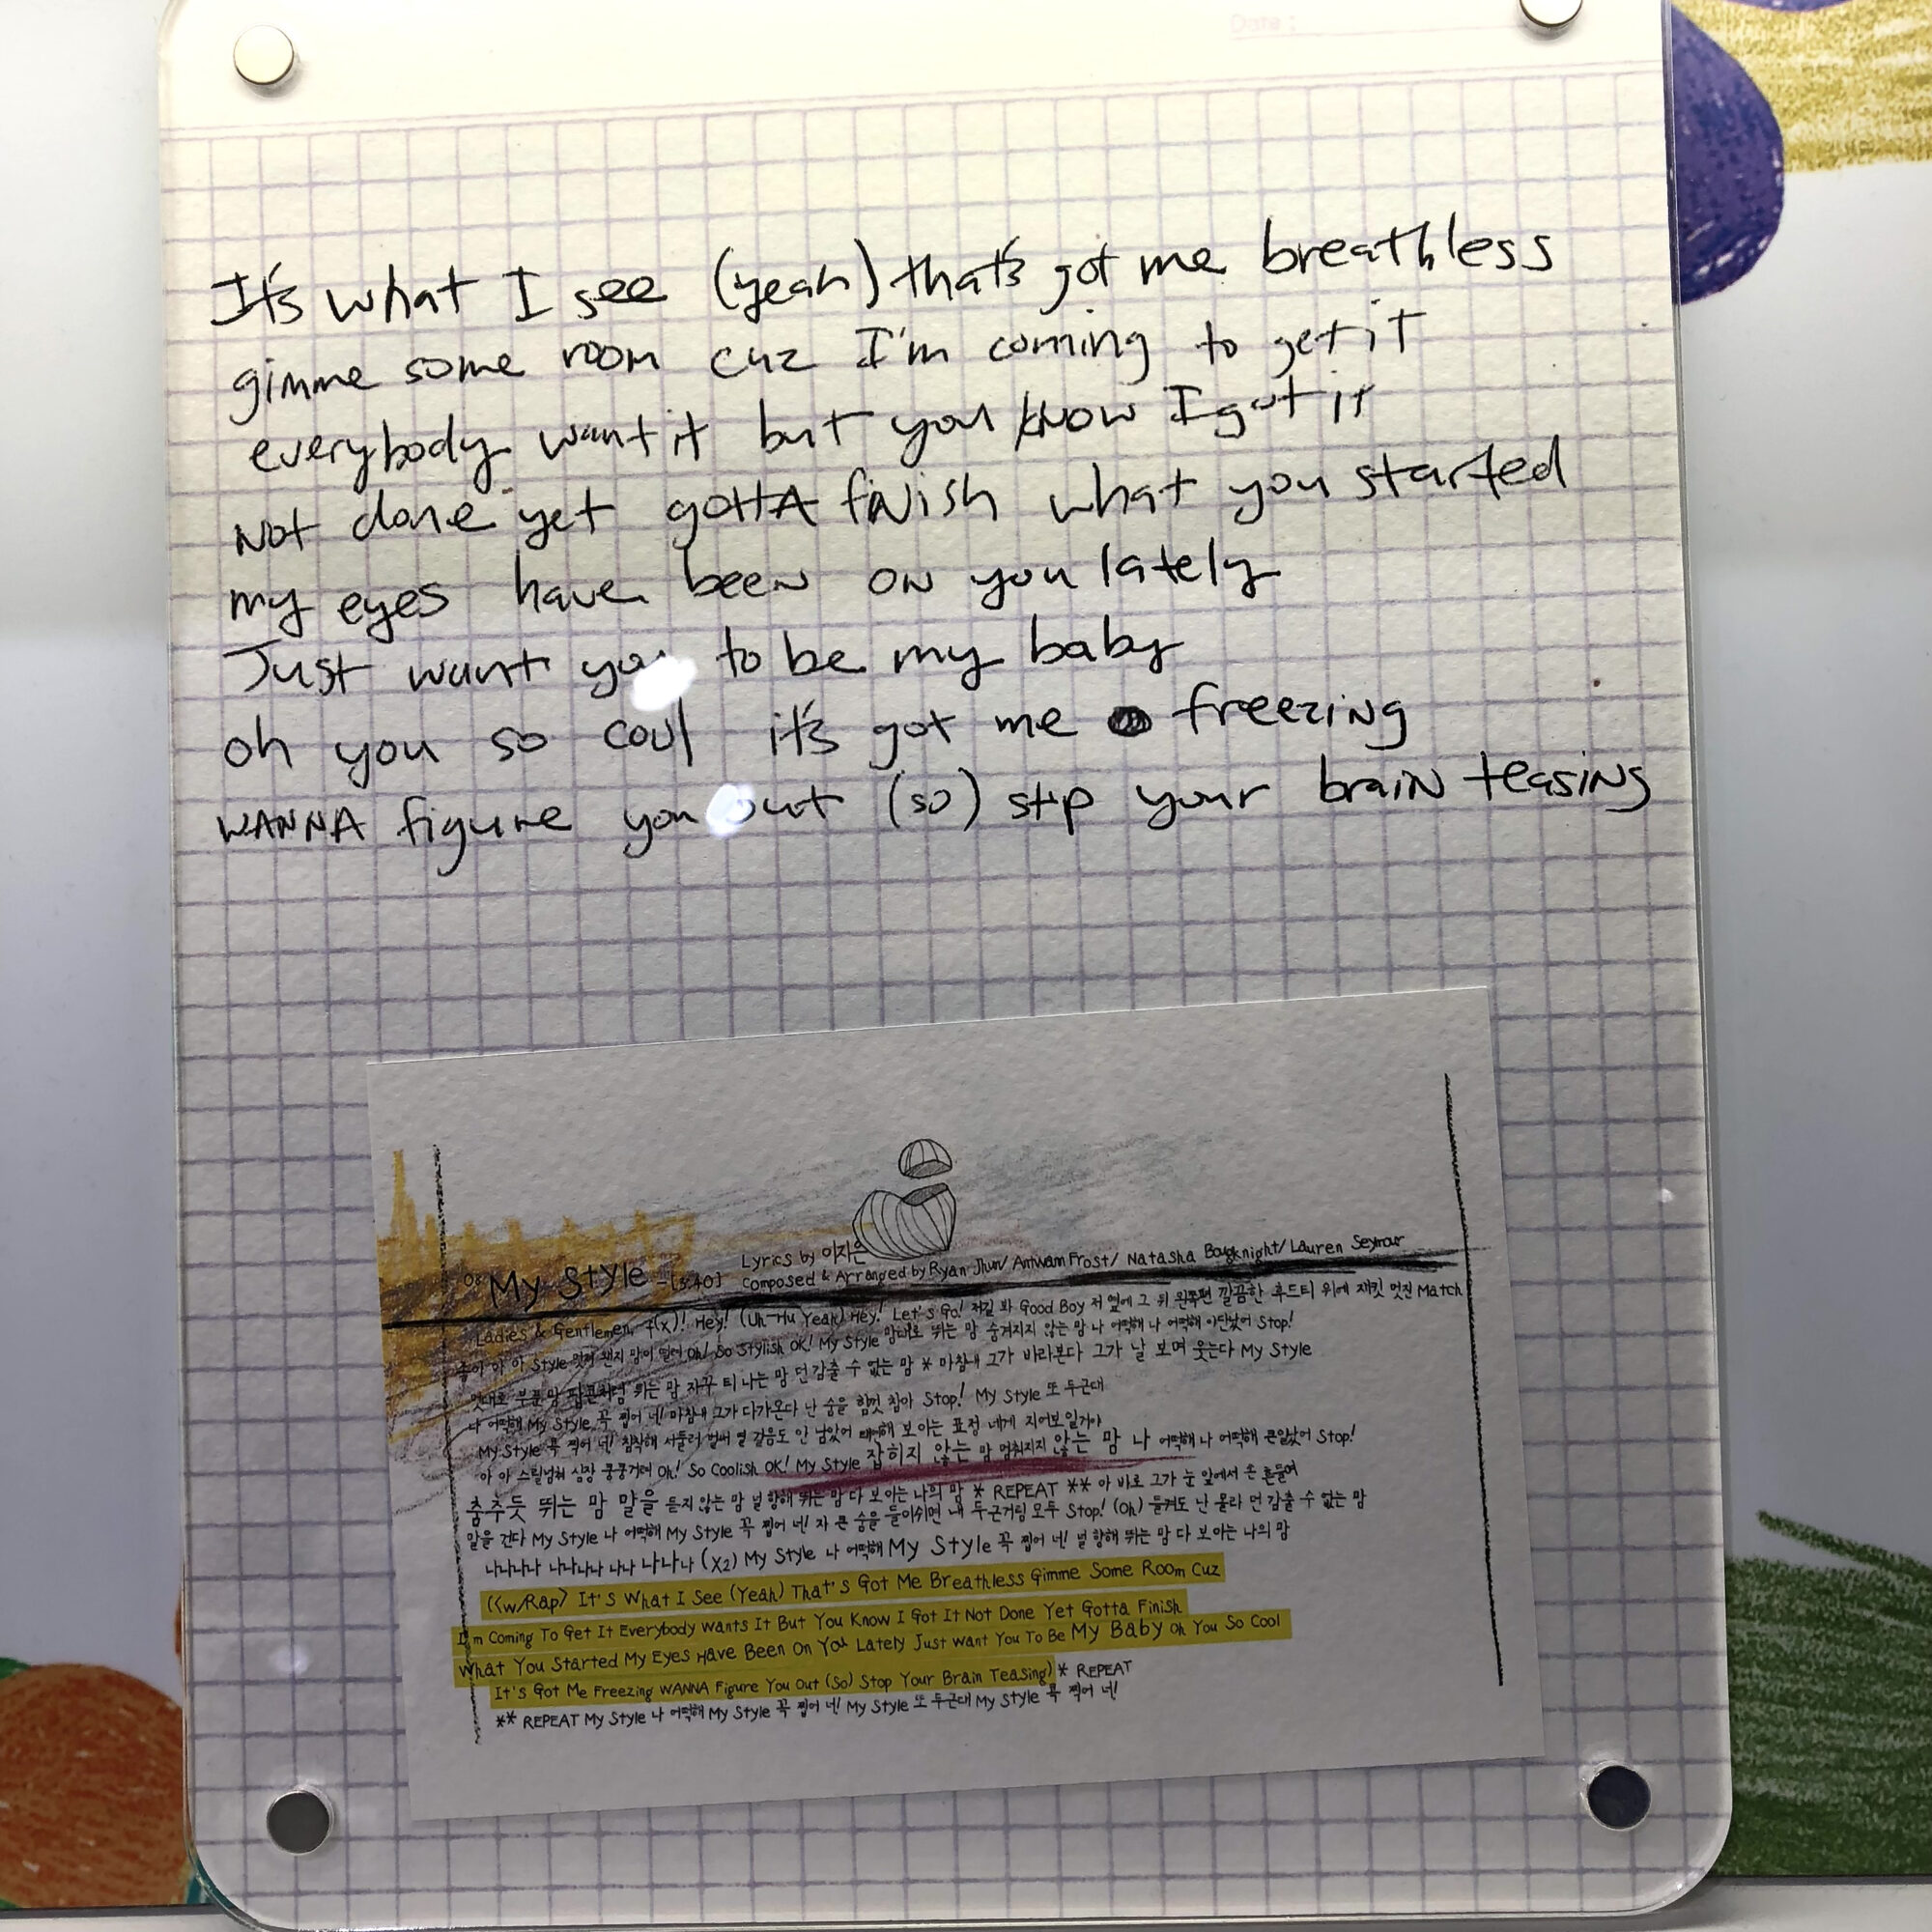 Date :
It's what I see (yeah) that's got me breathless
gimme some room cuz I'm coming to get it
everybody want it but you know I got it
Not done yet gotta finish what you started
my eyes have been on you lately
Just want you to be my baby
oh you so cool it's got me freezing
WANNA figure you out (so) stop your brain teasing
Lyrics by 이자은
08 My Style - [3:40] Composed & Arranged by Ryan Jhun/ Antwam Frost/ Natasha Bougknight/ Lauren Seymour
Ladies & Gentlemen, f(x)! Hey! (Uh-Hu Yeah) Hey! Let's Go! 저길 봐 Good Boy 저 옆에 그 뒤 왼쪽편 깔끔한 후드티 위에 재킷 멋진 Match
아 아 Style 멋져 왠지 맘이 떨려 Oh! So Stylish OK! My Style 맘대로 뛰는 맘 숨겨지지 않는 맘 나 어떡해 나 어떡해 이단났어 Stop!
멋대로 부푼 맘 팝콘처럼 튀는 맘 자꾸 티 나는 맘 던 감출 수 없는 맘 * 마침내 그가 바라본다 그가 날 보며 웃는다 My Style
나 어떡해 My Style 꼭 찝어 너! 마침내 그가 다가온다 난 숨을 힘껏 참아 Stop! My Style 또 두근대
My Style 꼭 찝어 너! 침착해 서둘러 벌써 열 걸음도 안 남았어 태연해 보이는 표정 네게 지어보일거야
아 아 스릴넘쳐 심장 쿵쿵거려 Oh! So Coolish OK! My Style 잡히지 않는 맘 멈춰지지 않는 맘 나 어떡해 나 어떡해 큰일났어 Stop!
춤추듯 뛰는 맘 말을 듣지 않는 맘 널 향해 뛰는 맘 다 보이는 나의 맘 * REPEAT ** 아 바로 그가 눈 앞에서 손 흔들며
말을 건다 My Style 나 어떡해 My Style 꼭 찝어 너! 자 큰 숨을 들이쉬면 내 두근거림 모두 Stop! (Oh) 들켜도 난 몰라 던 감출 수 없는 맘
나나나나 나나나나 나나 나나나나 (X2) My Style 나 어떡해 My Style 꼭 찝어 너! 널 향해 뛰는 맘 다 보이는 나의 맘
(<w/Rap> It's What I See (Yeah) That's Got Me Breathless Gimme Some Room Cuz
I'm Coming To Get It Everybody Wants It But You Know I Got It Not Done Yet Gotta Finish
What You Started My Eyes Have Been On You Lately Just Want You To Be My Baby Oh You So Cool
It's Got Me Freezing WANNA Figure You Out (So) Stop Your Brain Teasing) * REPEAT
** REPEAT My Style 나 어떡해 My Style 꼭 찝어 너! My Style 또 두근대 My Style 꼭 찍어 너!